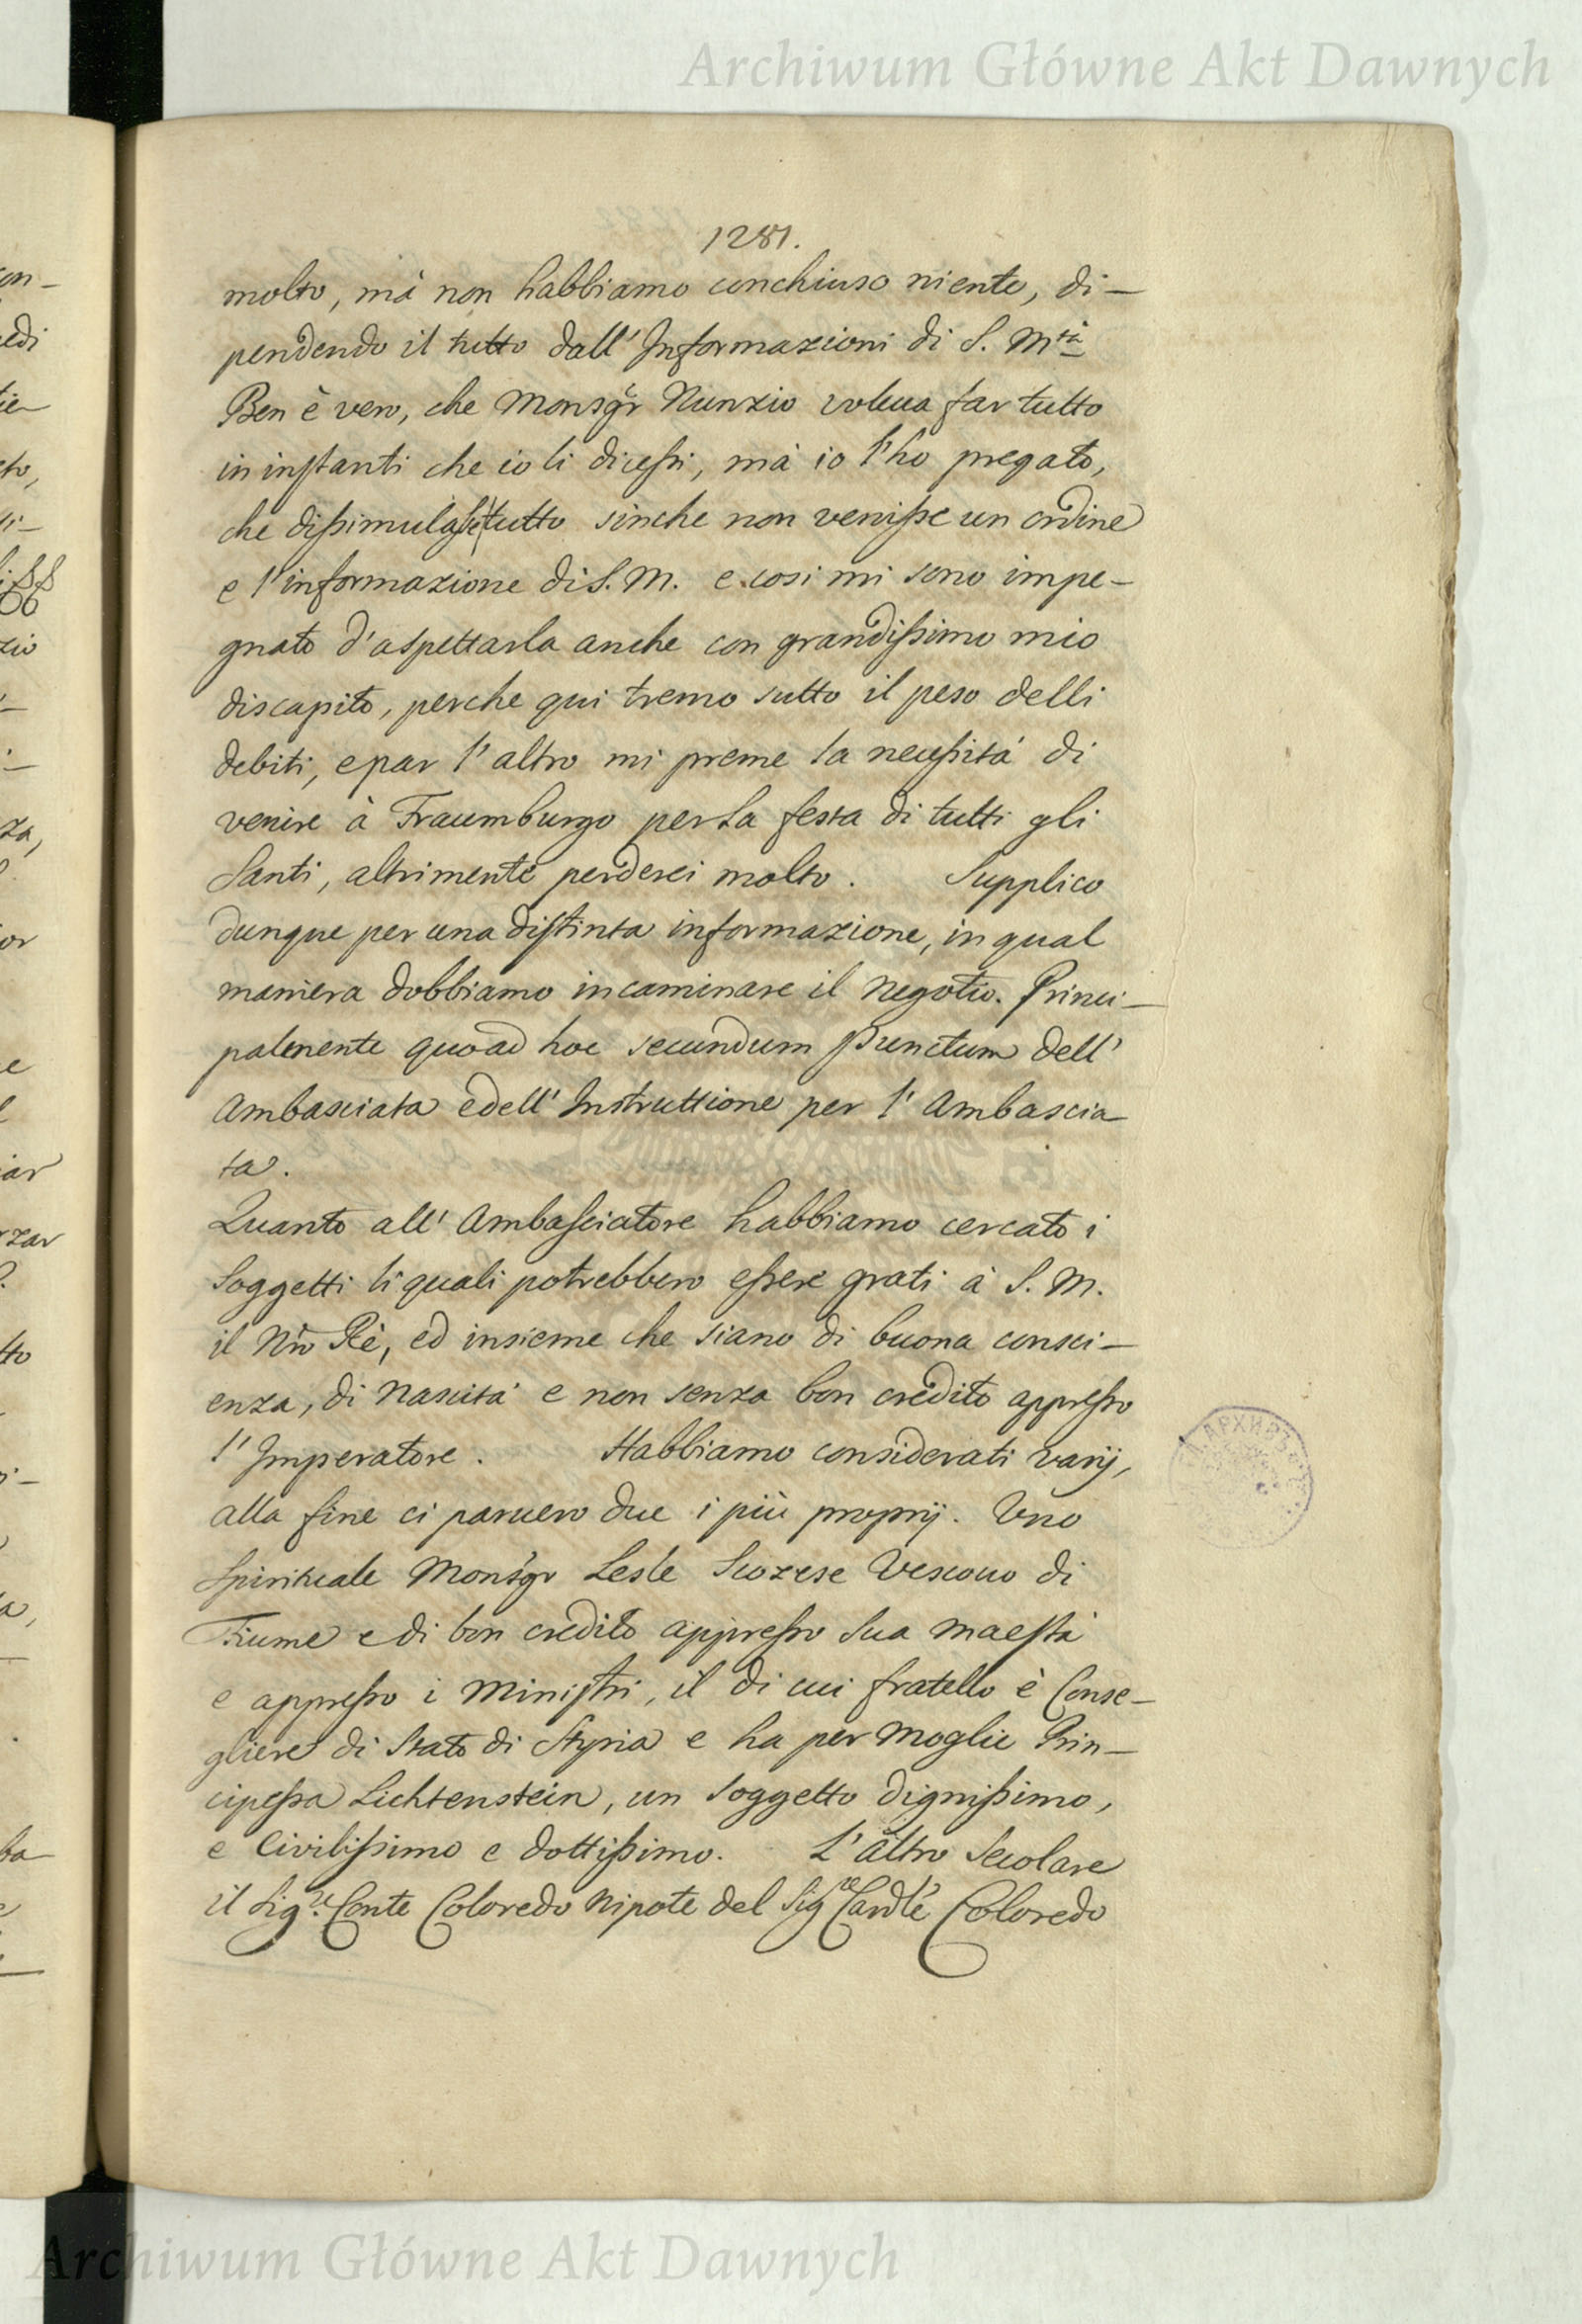 Archiwum Główne Akt Dawnych
1281.
molto, mà non habbiamo conchiuso niente, di—
pendendo il tutto dall' Informazioni di S. M.tà
Ben è vero, che Monsgr Nunzio voleua far tutto
in instanti che io li dicessi, mà io l'ho pregato,
che dissimulasse tutto sinche non venisse un ordine
e l'informazione di S. M. e cosi mi sono impe—
gnato d'aspettarla anche con grandissimo mio
discapito, perche qui tremo sutto il peso delli
debiti, e par l'altro mi preme la necessità di
venire à Fraumburgo per la festa di tutti gli
Santi, altrimente perderei molto. Supplico
dunque per una distinta informazione, in qual
maniera dobbiamo incaminare il negotio. Princi—
palmente quoad hoc secundum punctum dell'
Ambasciata e dell' Instruttione per l' Ambascia—
ta.
Quanto all' Ambasciatore habbiamo cercato i
Soggetti li quali potrebbero essere grati à S. M.
il Nro Rè, ed insieme che siano di buona consci—
enza, di nascità e non senza bon credito appresso
l' Imperatore. Habbiamo considerati varij,
alla fine ci paruero due i più proprij. Uno
Spirituale Monsgr Lesle Scozese Vescouo di
Fiume e di bon credito appresso Sua Maestà
e appresso i Ministri, il di cui fratello è Conse—
gliere di Stato di Styria e ha per Moglie Prin—
cipessa Lichtenstein, un Soggetto dignissimo,
e Civilissimo e dottissimo. L'altro Secolare
il Sig.re Conte Coloredo nipote del Sigre Cardle Coloredo
Archiwum Główne Akt Dawnych